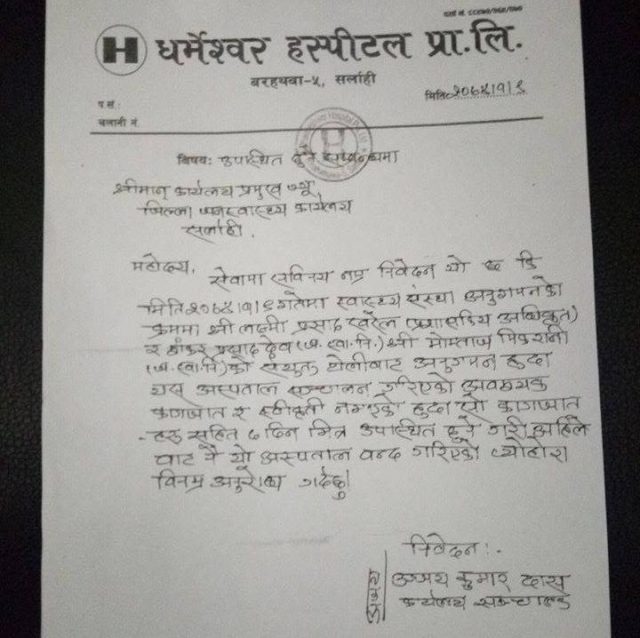 H धर्मेश्वर हस्पीटल प्रा.लि.
बरहथवा-५, सर्लाही
मिति:२०७५।१।९
प.सं:
चलानी नं.
विषयः उपस्थित हुने सम्बन्धमा
श्रीमान् कार्यलय प्रमुख ज्यू,
जिल्ला जनस्वास्थ्य कार्यलय
सर्लाही.
महोदय,
सेवामा सविनय नम्र निवेदन यो छ कि
मिति २०७५।१।९ गतेमा स्वास्थ्य संस्था अनुगमनको
क्रममा श्री लक्ष्मी प्रसाद खरेल (प्रशासकिय अधिकृत)
र शंकर प्रसाद देव (ज.स्वा.नि.) श्री मोमताज
(ज.स्वा.नि) को संयुक्त टोलीबाट अनुगमन हुदा
यस अस्पताल सञ्चालन गरिएको आवश्यक
कागजात र स्वीकृती नभएको हुदा सो कागजात
-हरु सहित ७ दिन भित्र उपस्थित हुने गरी अहिले
बाट नै यो अस्पताल बन्द गरिएको व्योहोरा
विनम्र अनुरोध गर्दछु।
निवेदक :-
उज्जय कुमार दास
कार्यलय सञ्चालक